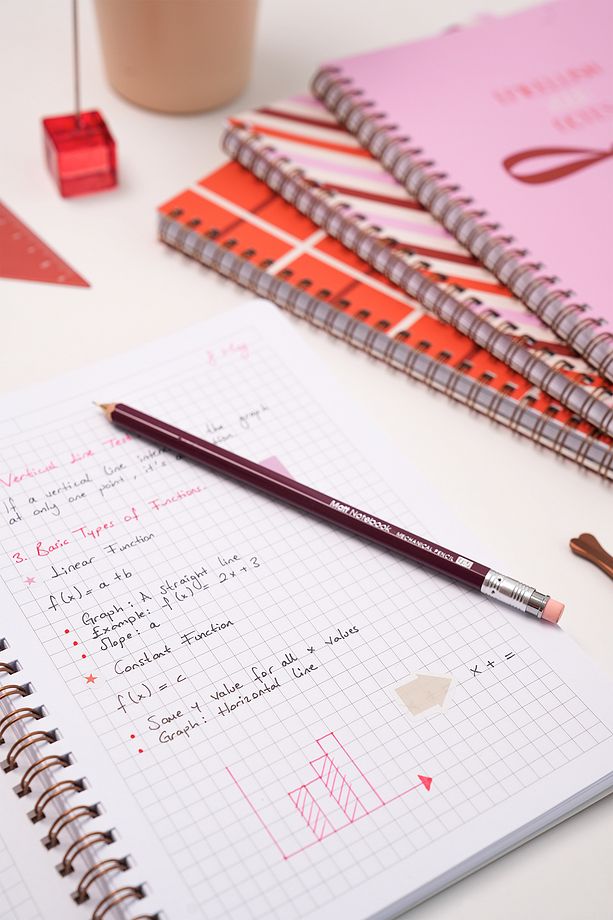 8 May
Vertical Line Tes
If a vertical line inter the graph
at only one point, it's a
3. Basic Types of Functions.
Linear Function
f(x) = a + b
Graph: A straight line
Example: f(x) = 2x + 3
Slope: a
Constant Function
f(x) = c
Same y value for all x values
Graph: Horizontal line
x + =
Matt Notebook MECHANICAL PENCIL